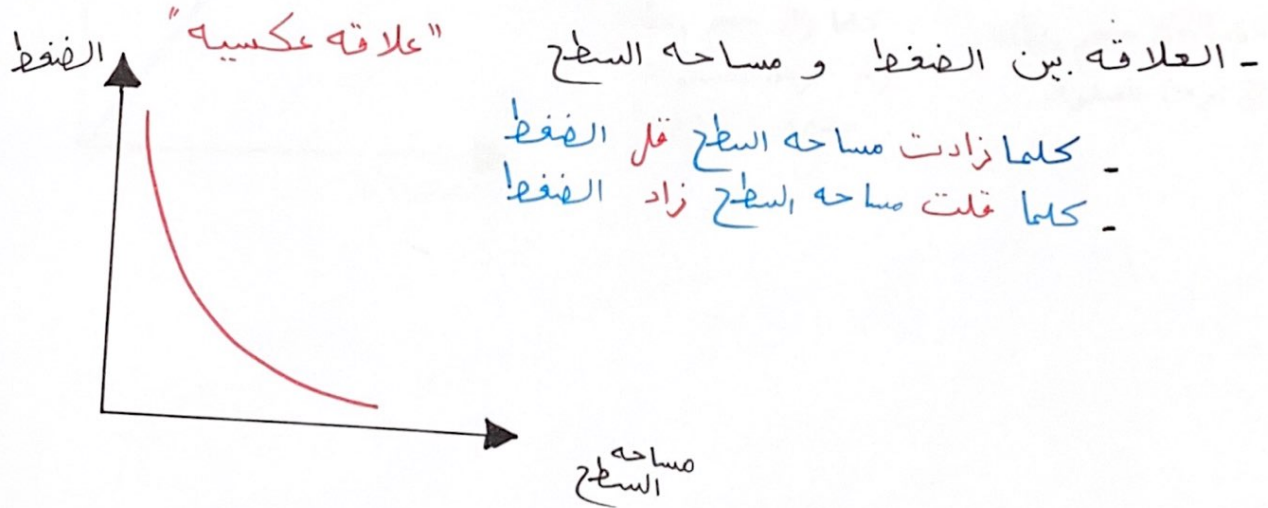 - العلاقه بين الضغط و مساحه السطح
"علاقه عكسيه"
الضغط
- كلما زادت مساحه السطح قل الضغط
- كلما قلت مساحه السطح زاد الضغط
مساحه
السطح